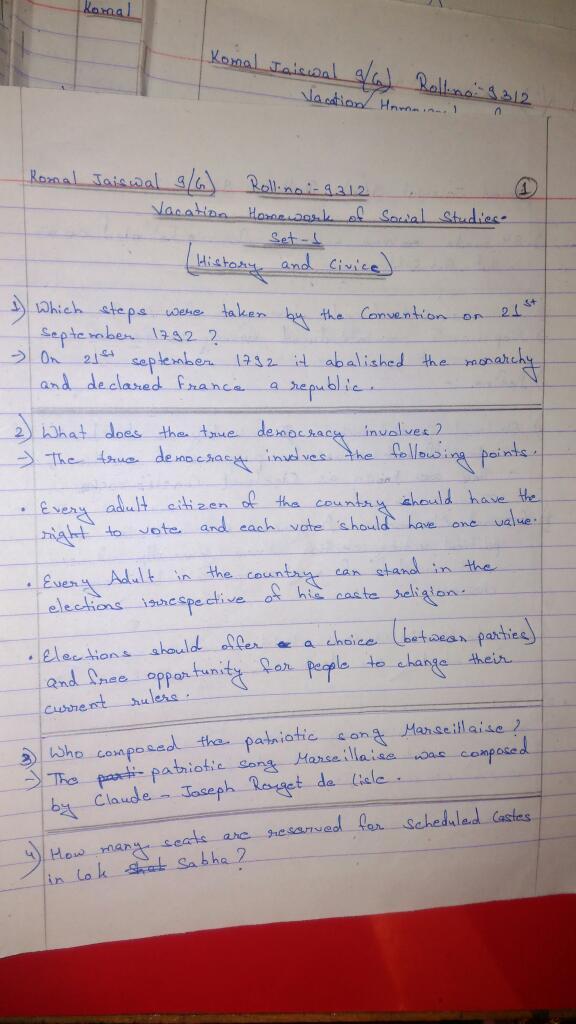 Komal
Komal Jaiswal 9/(G) Roll.no:-9312
Vacation
Komal Jaiswal 9/(G) Roll.no:-9312 1
Vacation Homework of Social Studies.
Set-1
(History and Civics)
1) Which steps were taken by the Convention on 21st
September 1792 ?
→ On 21st september 1792 it abalished the monarchy
and declared france a republic.
2) What does the true democracy involves?
→ The true democracy involves the following points.
• Every adult citizen of the country should have the
right to vote and each vote should have one value.
• Every Adult in the country can stand in the
elections irrespective of his caste religion.
• Elections should offer a choice (between parties)
and free opportunity for people to change their
current rulers.
3) Who composed the patriotic song Marseillaise?
→ The patriotic song Marseillaise was composed
by Claude - Joseph Rouget de Lisle.
4) How many seats are reserved for Scheduled Castes
in Lok Sabha?